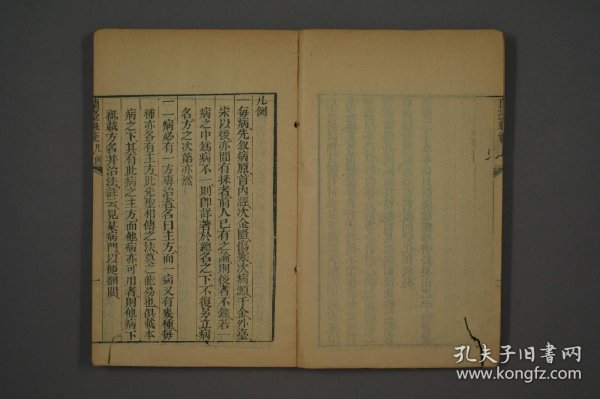 凡例
一每病先叙病原首內經次金匱傷寒次病源千金外臺
宋以後亦間有採者前人已有之論則後者不錄若一
病之中爲病不一則卽詳著於總名之下不復另立病
名方之次第亦然
一一病必有一方專治者名曰主方而一病又有幾種每
種亦各有主方此先聖相傳之法莫之能易也但載本
病之下其有此病之主方而他病亦可用者則他病下
祇載方名幷治法註云見某病門以便翻閱
蘭臺軌範 凡例
孔夫子旧书网
www.kongfz.com